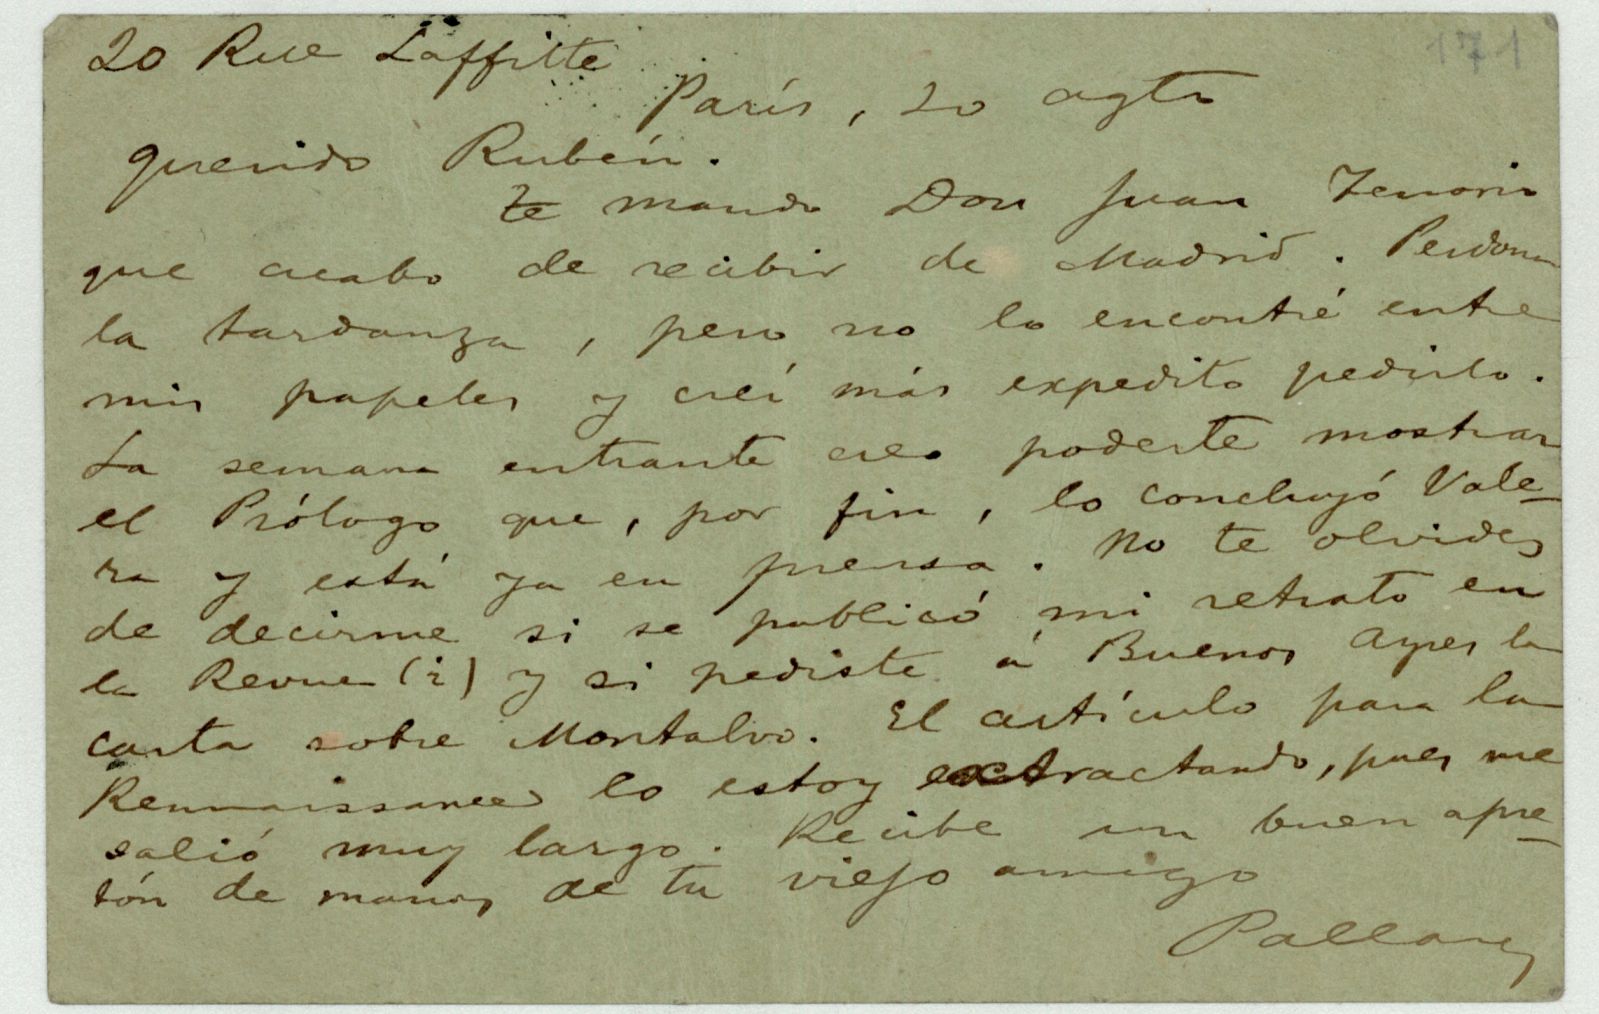 171
20 Rue Laffitte
París, 20 agto
querido Rubén.
te mando Don Juan Tenorio
que acabo de recibir de Madrid. Perdona
la tardanza, pero no lo encontré entre
mis papeles y creí más expedito pedirlo.
La semana entrante creo poderte mostrar
el Prólogo que, por fin, lo concluyó Vale-
ra y está ya en prensa. No te olvides
de decirme si se publicó mi retrato en
la Revue (i) y si pediste á Buenos Ayres la
carta sobre Montalvo. El artículo para la
Rennaissance lo estoy extractando, pues me
salió muy largo. Recibe un buen apre-
tón de manos de tu viejo amigo
Pallares